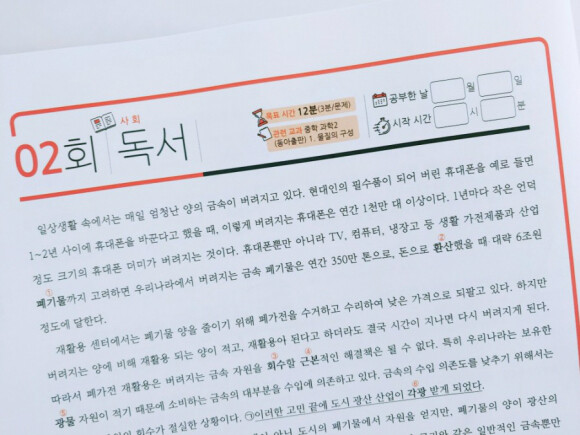 사회
02회 독서
목표 시간 12분(3분/문제)
관련 교과 중학 과학2
(동아출판) 1. 물질의 구성
공부한 날 월 일
시작 시간 시 분
일상생활 속에서는 매일 엄청난 양의 금속이 버려지고 있다. 현대인의 필수품이 되어 버린 휴대폰을 예로 들면
1~2년 사이에 휴대폰을 바꾼다고 했을 때, 이렇게 버려지는 휴대폰은 연간 1천만 대 이상이다. 1년마다 작은 언덕
정도 크기의 휴대폰 더미가 버려지는 것이다. 휴대폰뿐만 아니라 TV, 컴퓨터, 냉장고 등 생활 가전제품과 산업
① ②
폐기물까지 고려하면 우리나라에서 버려지는 금속 폐기물은 연간 350만 톤으로, 돈으로 환산했을 때 대략 6조원
정도에 달한다.
재활용 센터에서는 폐기물 양을 줄이기 위해 폐가전을 수거하고 수리하여 낮은 가격으로 되팔고 있다. 하지만
버려지는 양에 비해 재활용 되는 양이 적고, 재활용아 된다고 하더라도 결국 시간이 지나면 다시 버려지게 된다.
③ ④
따라서 폐가전 재활용은 버려지는 금속 자원을 회수할 근본적인 해결책은 될 수 없다. 특히 우리나라는 보유한
⑤
광물 자원이 적기 때문에 소비하는 금속의 대부분을 수입에 의존하고 있다. 금속의 수입 의존도를 낮추기 위해서는
⑥
회수가 절실한 상황이다. ㉠이러한 고민 끝에 도시 광산 산업이 각광 받게 되었다.
아닌 도시의 폐기물에서 자원을 얻지만, 폐기물의 양이 광산의
같은 일반적인 금속뿐만